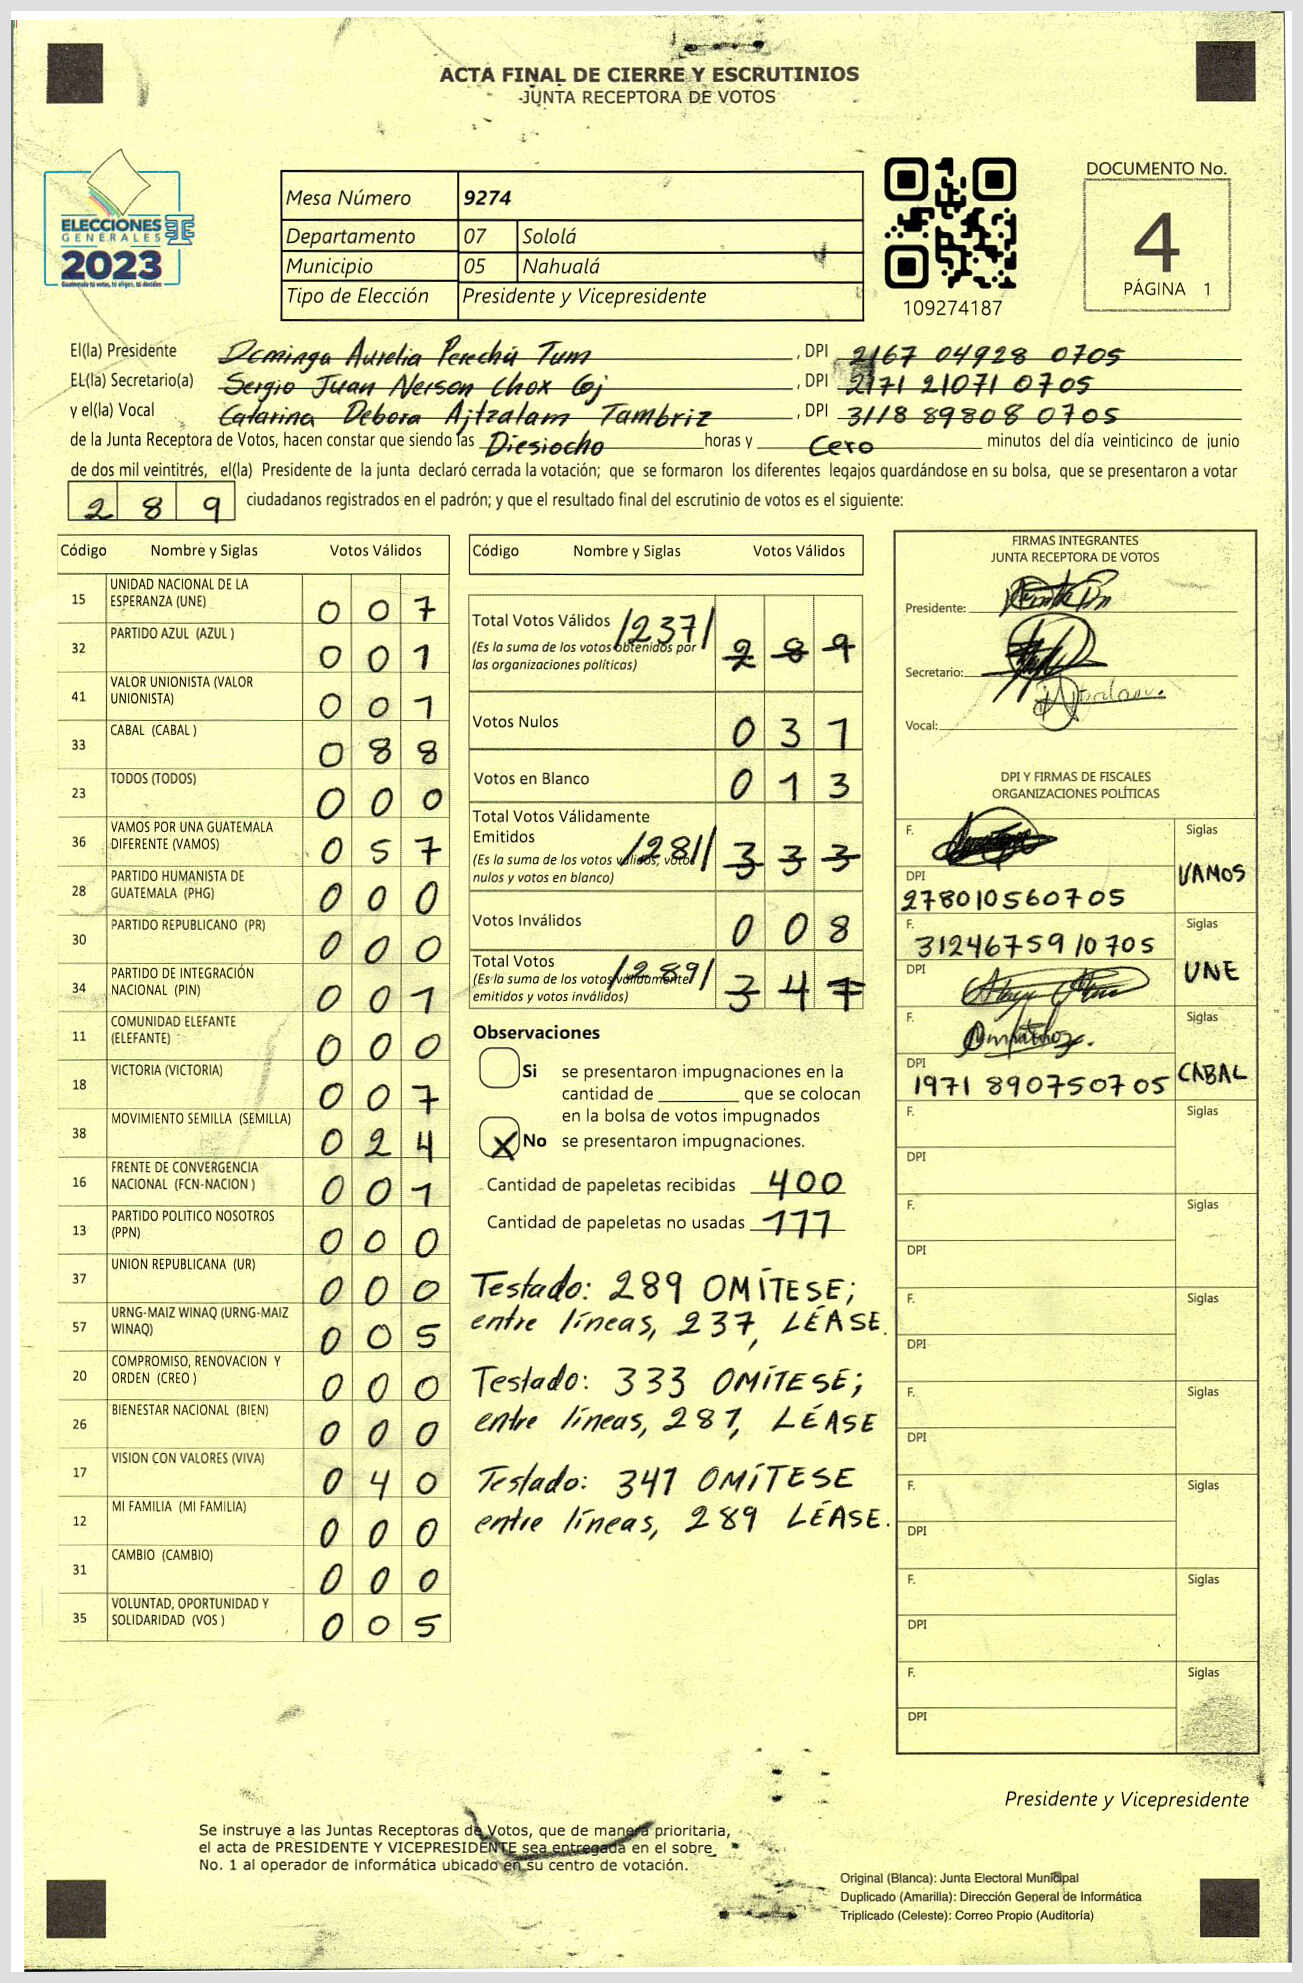 ACTA FINAL DE CIERRE Y ESCRUTINIOS
JUNTA RECEPTORA DE VOTOS
ELECCIONES
GENERALES
2023
Guatemala tú votas, tú eliges, tú decides
Mesa Número 9274
Departamento 07 Sololá
Municipio 05 Nahualá
Tipo de Elección Presidente y Vicepresidente
109274187
DOCUMENTO No.
4
PÁGINA 1
El(la) Presidente Dominga Aurelia Perechú Tum, DPI 2167 04928 0705
EL(la) Secretario(a) Sergio Juan Nerson Chox Coj, DPI 2171 21071 0705
y el(la) Vocal Catarina Debora Ajtzalam Tambriz, DPI 3118 89808 0705
de la Junta Receptora de Votos, hacen constar que siendo las Diesiocho horas y Cero minutos del día veinticinco de junio
de dos mil veintitrés, el(la) Presidente de la junta declaró cerrada la votación; que se formaron los diferentes legajos quardándose en su bolsa, que se presentaron a votar
289 ciudadanos registrados en el padrón; y que el resultado final del escrutinio de votos es el siguiente:
Código Nombre y Siglas Votos Válidos
15 UNIDAD NACIONAL DE LA ESPERANZA (UNE) 007
32 PARTIDO AZUL (AZUL ) 001
41 VALOR UNIONISTA (VALOR UNIONISTA) 001
33 CABAL (CABAL ) 088
23 TODOS (TODOS) 000
36 VAMOS POR UNA GUATEMALA DIFERENTE (VAMOS) 057
28 PARTIDO HUMANISTA DE GUATEMALA (PHG) 000
30 PARTIDO REPUBLICANO (PR) 000
34 PARTIDO DE INTEGRACIÓN NACIONAL (PIN) 001
11 COMUNIDAD ELEFANTE (ELEFANTE) 000
18 VICTORIA (VICTORIA) 007
38 MOVIMIENTO SEMILLA (SEMILLA) 024
16 FRENTE DE CONVERGENCIA NACIONAL (FCN-NACION ) 001
13 PARTIDO POLITICO NOSOTROS (PPN) 000
37 UNION REPUBLICANA (UR) 000
57 URNG-MAIZ WINAQ (URNG-MAIZ WINAQ) 005
20 COMPROMISO, RENOVACION Y ORDEN (CREO ) 000
26 BIENESTAR NACIONAL (BIEN) 000
17 VISION CON VALORES (VIVA) 040
12 MI FAMILIA (MI FAMILIA) 000
31 CAMBIO (CAMBIO) 000
35 VOLUNTAD, OPORTUNIDAD Y SOLIDARIDAD (VOS ) 005
Código Nombre y Siglas Votos Válidos
Total Votos Válidos /237/ 289
(Es la suma de los votos obtenidos por
las organizaciones políticas)
Votos Nulos 031
Votos en Blanco 013
Total Votos Válidamente
Emitidos /281/ 333
(Es la suma de los votos válidos, votos
nulos y votos en blanco)
Votos Inválidos 008
Total Votos /289/ 347
(Es la suma de los votos válidamente
emitidos y votos inválidos)
Observaciones
Si se presentaron impugnaciones en la
cantidad de ________ que se colocan
en la bolsa de votos impugnados
X No se presentaron impugnaciones.
Cantidad de papeletas recibidas 400
Cantidad de papeletas no usadas 111
Testado: 289 OMÍTESE;
entre líneas, 237, LÉASE.
Testado: 333 OMÍTESE;
entre líneas, 281, LÉASE
Testado: 341 OMÍTESE
entre líneas, 289 LÉASE.
FIRMAS INTEGRANTES
JUNTA RECEPTORA DE VOTOS
Presidente:
Secretario:
Vocal:
DPI Y FIRMAS DE FISCALES
ORGANIZACIONES POLÍTICAS
F. Siglas
VAMOS
DPI
278010560705
F. Siglas
3124675910705
UNE
DPI
F. Siglas
CABAL
DPI
1971 890750705
F. Siglas
DPI
F. Siglas
DPI
F. Siglas
DPI
F. Siglas
DPI
F. Siglas
DPI
F. Siglas
DPI
F. Siglas
DPI
Presidente y Vicepresidente
Se instruye a las Juntas Receptoras de Votos, que de manera prioritaria,
el acta de PRESIDENTE Y VICEPRESIDENTE sea entregada en el sobre
No. 1 al operador de informática ubicado en su centro de votación.
Original (Blanca): Junta Electoral Municipal
Duplicado (Amarilla): Dirección General de Informática
Triplicado (Celeste): Correo Propio (Auditoría)